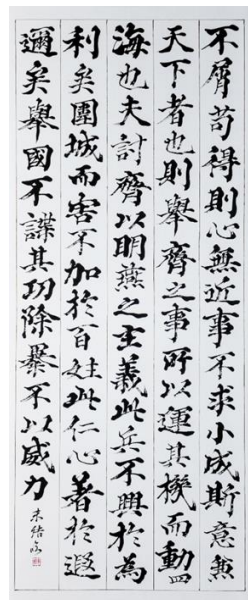 不屑苟得則心無近事不求小成斯意兼
天下者也則舉齊之事所以運其機而動四
海也夫討齊以明燕之主義此兵不興於為
利矣圍城而害不加於百姓此仁心著於遐
邇矣舉國不謀其功除暴不以威力